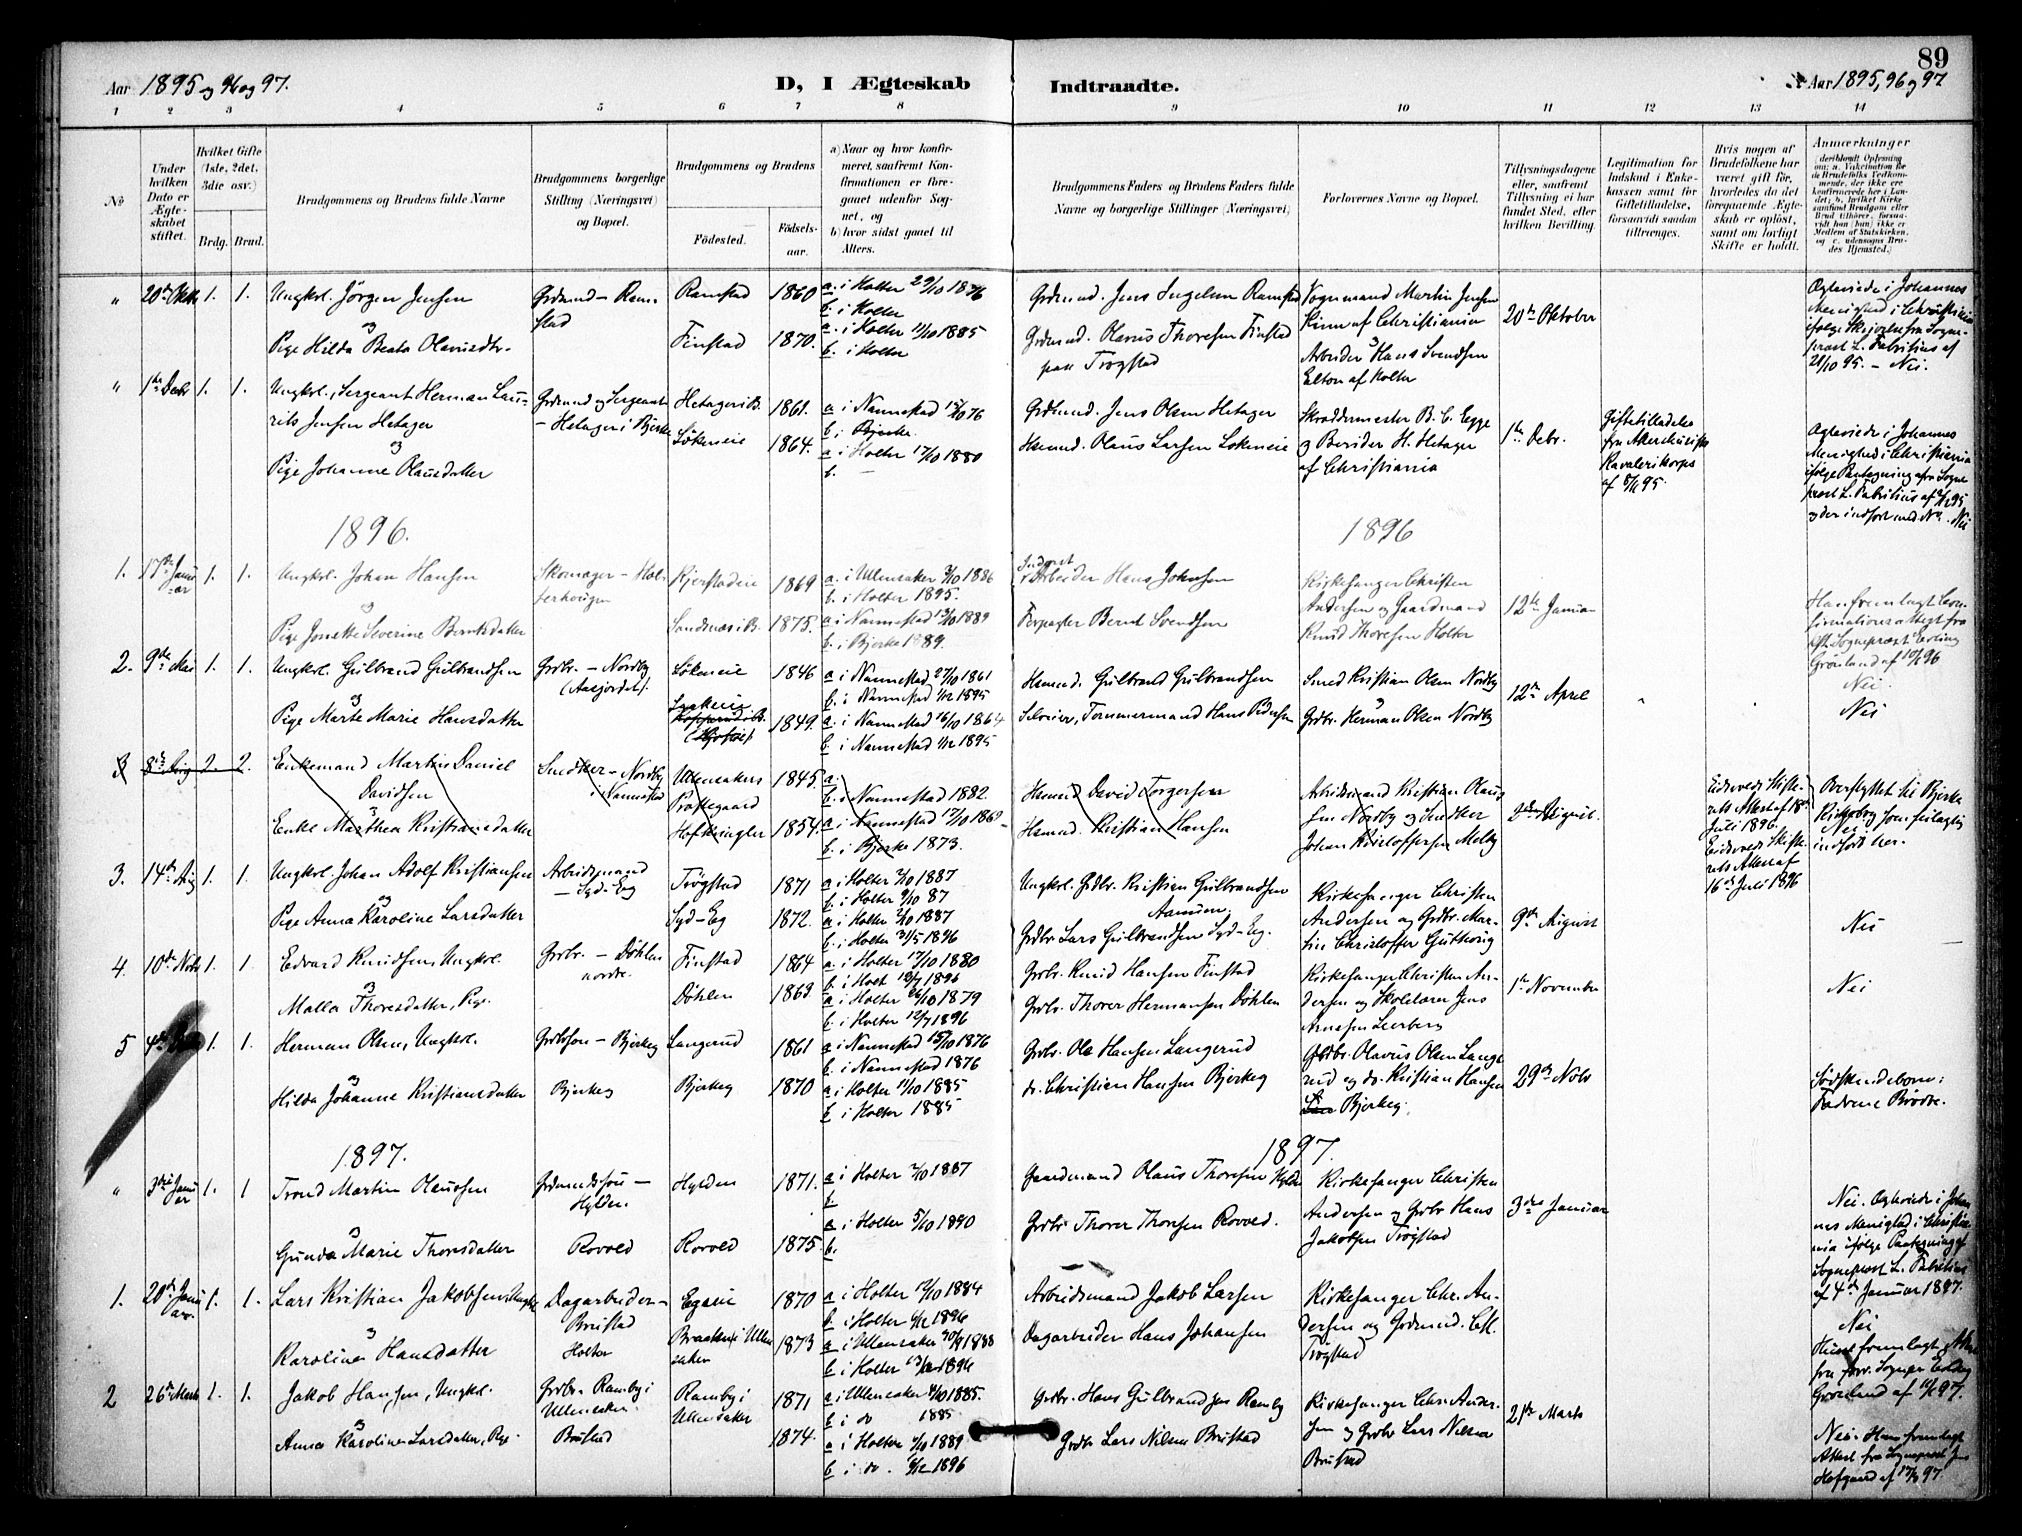 89
Aar 1895 og 96 og 97.
D, I Ægteskab
Indtraadte.
Aar 1895, 96 og 97
1 2 3 4 5 6 7 8 9 10 11 12 13 14
No
Under hvilken Dato er Ægteskabet stiftet.
Hvilket Gifte (1ste, 2det, 3die osv.)
Brdg. Brud.
Brudgommens og Brudens fulde Navne
Brudgommens borgerlige Stilling (Næringsvei) og Bopæl.
Brudgommens og Brudens
Födested.
Födselsaar.
a) Naar og hvor konfirmeret, saafremt Konfirmationen er foregaaet udenfor Sognet, og
b) hvor sidst gaaet til Alters.
Brudgommens Faders og Brudens Faders fulde Navne og borgerlige Stillinger (Næringsvei)
Forlovernes Navne og Bopæl.
Tillysningsdagene eller, saafremt Tillysning ei har fundet Sted, efter hvilken Bevilling.
Legitimation for Indskud i Enkekassen samt for Giftetilladelse, forsaavidt saadan tiltrænges.
Hvis nogen af Brudefolkene har været gift før, hvorledes da det foregaaende Ægteskab er oplöst, samt om lovligt Skifte er holdt.
Anmærkninger
" 20de Oktbr 1. 1. Ungkrl. Jörgen Jensen
og
Pige Hilda Beata Olausdtr.
Grdmnd - Ramstad
Ramstad 1860
Finstad 1870.
a. i Holter 29/10 1876
b. i Holter
a. i Holter 11/10 1885
b. i Holter
Grdmnd. Jens Ingelsen Ramstad
Grdmnd. Olaus Thoresen Finstad
paa Trøgstad
Vognmand Martin Jensen
af Christiania
Arbeider Hans Svendsen
Elton af Holter
20de Oktober
Ægteviede i Johannes
Menighed i Christiania
21/10 95. - Nei.
" 1ste Decbr 1. 1. Ungkrl., Sergeant Herman Lauritz Jensen Hetager
og
Pige Johanne Olausdatter
Grdmnd og Sergeant
- Hetager i Bjerke
Hetager i B. 1861.
Lökeneie 1864.
a i Nannestad 15/10 76
b. i Bjerke.
a i Holter 17/10 1880
b. -
Grdmnd. Jens Olsen Hetager
Husmnd. Olaus Larsen Lökeneie
Skræddermester B. C. Egge
H. Hetager
af Christiania
1ste Debr.
Giftetilladelse
fra Akershusiske
Kavalerikorps
af 5/11 95.
Ægteviede i Johannes
Menighed i Christiania
ifølge Paategning af Sogneprest L. Fabritius
1896.
1896
1. 17de Januar 1. 1. Ungkrl. Johan Hansen
og
Pige Jonette Severine Berntsdatter
Skomager - Holterhougen
Kjerstadeie 1869
Sandsnæs i B. 1875.
a. i Ullensaker 3/10 1886
b. i Holter 1895.
a i Nannestad 13/10 1889
b. i Bjerke 1889.
Arbeider Hans Johnsen
Forpagter Bernt Svendsen
Kirkesanger Christen
Andersen og Gaardmand
Knud Thoresen Holter
12te Januar
Han fremlagt Confirmationsattest fra
Sogneprest Erling
Grönland af 10/1 96
Nei.
2. 9de Mai 1. 1. Ungkrl. Gulbrand Gulbrandsen
og
Pige Marte Marie Hansdatter
Grdbr. - Nordby
(Aasjordet).
Lökeneie 1846
1849.
a i Nannestad 27/10 1861
b. i Nannestad 1/12 1895
a. i Nannestad 16/10 1864
b. i Nannestad 1/12 1895
Husmd. Gulbrand Gulbrandsen
Selveier, Tømmermand Hans Pedersen
Smed Kristian Olsen Nordby
og
Grdbr. Herman Olsen Nordby
12te April
Nei
3 8de Aug 2. 2. Enkemand Martin Daniel
Davidsen
og
Enke Marthea Kristiansdatter
Snedker - Nordby
i Nannestad
Ullensakers
Præstegaard 1845.
Hofkringler 1854.
a.
b. i Nannestad 1882.
a i Nannestad 17/10 1869
b. i Bjerke 1873.
Husmd David Torgersen
Husmd. Kristian Hansen
Arbeidsmand Kristian Olaussen Nordby og Snedker
Johan Kristoffersen Melby
2den August.
Eidsvolds Skifterets Attest af 18de
Juli 1896.
Eidsvolds Skifterets Attest af
16de Juli 1896
Overflyttet til Bjerke
Kirkebog som feilagtig
indført her.
Nei
3. 14de Aug 1. 1. Ungkrl. Johan Adolf Kristiansen
og
Pige Anna Karoline Larsdatter
Arbeidsmand
- Syd-Eg
Trögstad 1871
Syd-Eg 1872.
a i Holter 2/10 1887
b. i Holter 9/10 87
a i Holter 2/10 1887
b. i Holter 31/5 1896
Ungkrl. Grdbr. Kristian Gulbrandsen
Aamum.
Grdbr Lars Gulbrandsen Syd-Eg.
Kirkesanger Christen
Andersen og Grdbr. Martin Christoffer Gutterig
9de August
Nei
4. 10de Nobr 1. 1. Edvard Knudsen, Ungkrl.
og
Malla Thoresdatter, Pige.
Grdbr. - Döhlen
nordre.
Finstad 1864
Döhlen 1863.
a. i Holter 17/10 1880
b. i Holt 12/7 1896
a i Holter 26/10 1879
b. i Holter 12/7 1896
Grdbr. Knud Hansen Finstad
Grdbr. Thorer Hermansen Döhlen
Kirkesanger Christen Andersen og Skolelærer Jens
Arnesen Leerberg
1ste November
Nei
5 4de 1. 1. Herman Olsen, Ungkrl.
og
Hilda Johanne Kristiansdatter
Grdbrsøn - Bjerkeg
Bjerkeg
Langerud 1861
Bjerkeg 1870
a i Nannestad 15/10 1876
b. i Nannestad 1876
a i Holter 11/10 1885
b i Holter 1885
Grdbr. Ole Hansen Langerud
do. Christian Hansen Bjerkeg
Grdbr. Olavus Olsen Langerud og do. Kristian Hansen
Bjerkeg.
29de Nobr
Södskendebörn:
Fædrene Brødre.
1897.
1897.
" 3die Januar 1. 1 Trond Martin Olaussen
og
Gunda Marie Thorsdatter
Grdmandssøn -
Hylden.
Rovold
Hylden 1871.
Rovold 1875
a i Holter 2/10 1887
b
a i Holter 5/10 1890
b.
Gaardmand Olaus Thoresen Hylden
Grdbr Thorer Thorsen Rovold.
Kirkesanger Christen
Andersen og Grdbr Hans
Jakobsen Trögstad
3die Januar
Nei. Ægteviede i Johannes Menighed i Christiania ifølge Paategning af
Sogneprest L. Fabritius
af 4de Januar 1897.
1. 20de Januar 1. 1. Lars Kristian Jakobsen, Ungkrl
og
Karoline Hansdatter
Dagarbeider -
Brustad
Holter
Egseie 1870
Braaten i Ullensaker 1873
a i Holter 12/10 1884
b i Holter 6/12 1896
a i Ullensaker 30/9 1888
b i Holter 13/12 1896
Arbeidsmand Jakob Larsen
Dagarbeider Hans Johansen
Kirkesanger Chr. Andersen og Grdmnd.
Trögstad
Nei
Grönland af 11/1 97.
2 26de Marts 1. 1. Jakob Hansen, Ungkrl.
og
Anna Karoline Larsdatter, Pige.
Grdbr. Ramby i
Ullensaker
Brustad
Ramby i
Ullensaker 1871
1874.
a i Ullensaker 4/10 1885.
b i do 1885
a i Holter 1889
b i do. 6/12 1896
Grdbr. Hans Gulbrandsen Ramby
Grdbr Lars Nilsen Brustad
Kirkesanger Chr. Andersen og Grdbr Lars Nilsen
Brustad
21de Marts
Nei. Han fremlagt
Attest fra Sogneprest Jens
Hofgaard af 17/3 97.